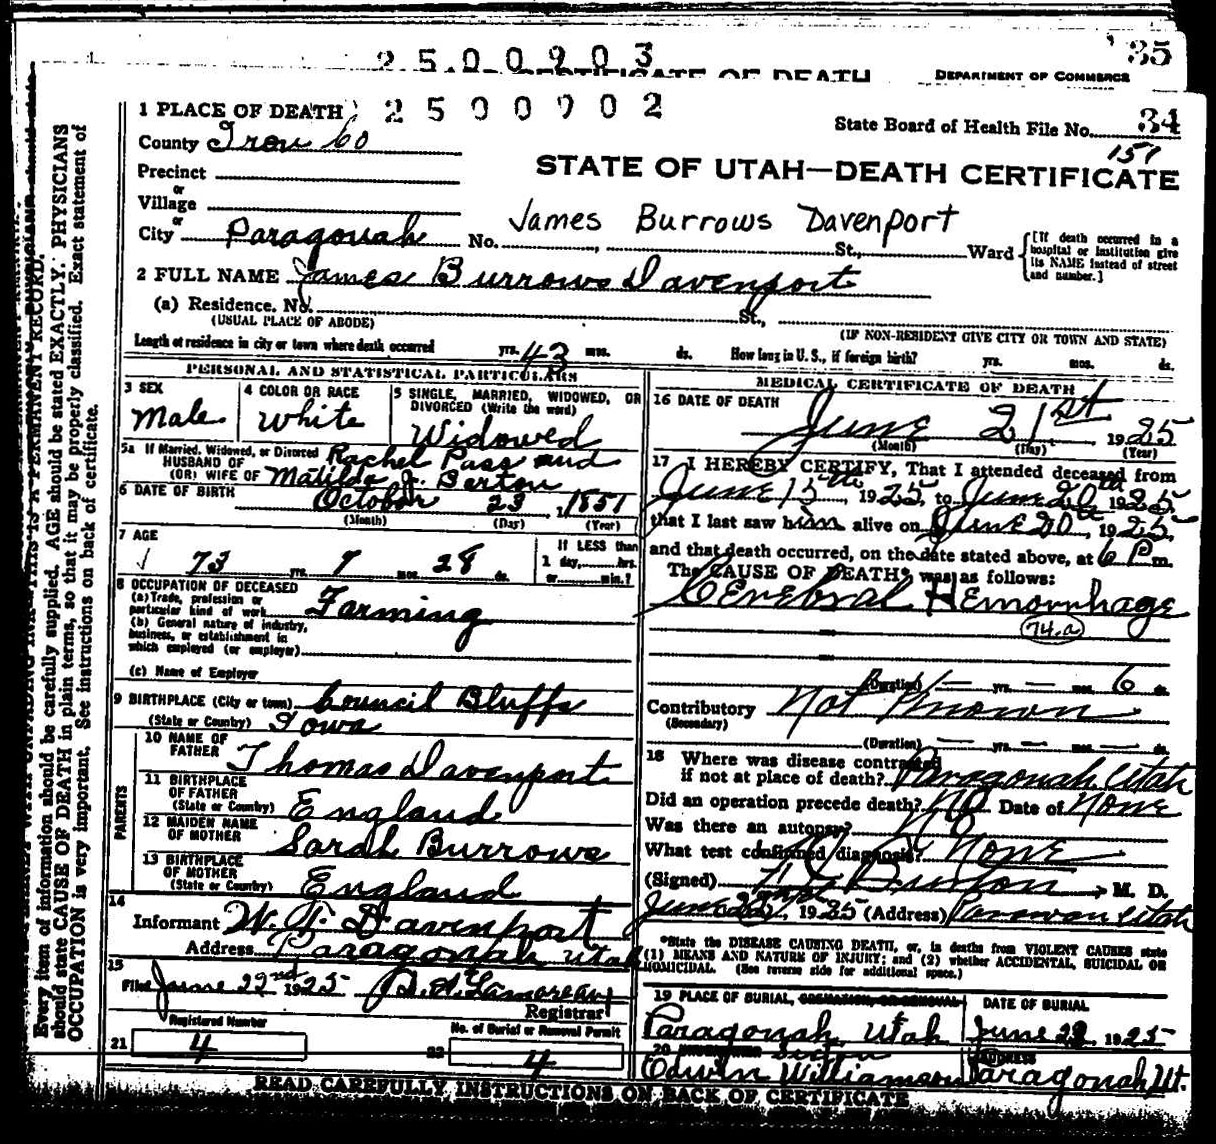 35
2500903
CERTIFICATE OF DEATH
DEPARTMENT OF COMMERCE
1 PLACE OF DEATH
2500902
State Board of Health File No. 34
157
County Iron Co
STATE OF UTAH—DEATH CERTIFICATE
Precinct
or
Village
or
James Burrows Davenport
City Paragonah No. St., Ward
[If death occurred in a hospital or institution give its NAME instead of street and number.]
2 FULL NAME James Burrows Davenport
(a) Residence. No. St.,
(USUAL PLACE OF ABODE) (IF NON-RESIDENT GIVE CITY OR TOWN AND STATE)
Length of residence in city or town where death occurred yrs. 43 mos. ds. How long in U. S., if foreign birth? yrs. mos. ds.
PERSONAL AND STATISTICAL PARTICULARS
3 SEX
Male
4 COLOR OR RACE
White
5 SINGLE, MARRIED, WIDOWED, OR DIVORCED (Write the word)
Widowed
5a If Married, Widowed, or Divorced
HUSBAND OF
(OR) WIFE OF
Rachel Pass and
Matilda J. Barton
6 DATE OF BIRTH October 23 1851
(Month) (Day) (Year)
7 AGE
73 yrs. 7 mos. 28 ds.
If LESS than
1 day, hrs.
or min.?
8 OCCUPATION OF DECEASED
(a) Trade, profession or
particular kind of work Farming
(b) General nature of industry,
business, or establishment in
which employed (or employer)
(c) Name of Employer
9 BIRTHPLACE (City or town) Council Bluffs
(State or Country) Iowa
PARENTS
10 NAME OF
FATHER Thomas Davenport
11 BIRTHPLACE
OF FATHER
(State or Country) England
12 MAIDEN NAME
OF MOTHER Sarah Burrows
13 BIRTHPLACE
OF MOTHER
(State or Country) England
14
Informant W. T. Davenport
Address Paragonah Utah
15
Filed June 22nd 1925
Registrar
Registered Number
21 4
No. of Burial or Removal Permit
22 4
MEDICAL CERTIFICATE OF DEATH
16 DATE OF DEATH
June 21st 1925
(Month) (Day) (Year)
17 I HEREBY CERTIFY, That I attended deceased from
June 15th, 1925, to June 20th 1925
that I last saw him alive on June 20th, 1925,
and that death occurred, on the date stated above, at 6 P m.
The CAUSE OF DEATH* was as follows:
Cerebral Hemorrhage
74.a
(Duration) — yrs. — mos. 6 ds.
Contributory Not Known
(Secondary)
(Duration) — yrs. — mos. — ds.
18 Where was disease contracted
if not at place of death? Paragonah Utah
Did an operation precede death? No Date of None
Was there an autopsy? No
What test confirmed diagnosis? None
(Signed) M. D.
June 22nd, 1925 (Address) Parowan Utah
*State the DISEASE CAUSING DEATH, or, in deaths from VIOLENT CAUSES state
(1) MEANS AND NATURE OF INJURY; and (2) whether ACCIDENTAL, SUICIDAL OR
HOMICIDAL. (See reverse side for additional space.)
19 PLACE OF BURIAL, CREMATION, OR REMOVAL
Paragonah Utah
DATE OF BURIAL
June 23 1925
20
Edwin Williamson
ADDRESS
Paragonah Ut.
READ CAREFULLY INSTRUCTIONS ON BACK OF CERTIFICATE
Every item of information should be carefully supplied. AGE should be stated EXACTLY. PHYSICIANS
should state CAUSE OF DEATH in plain terms, so that it may be properly classified. Exact statement of
OCCUPATION is very important. See instructions on back of certificate.